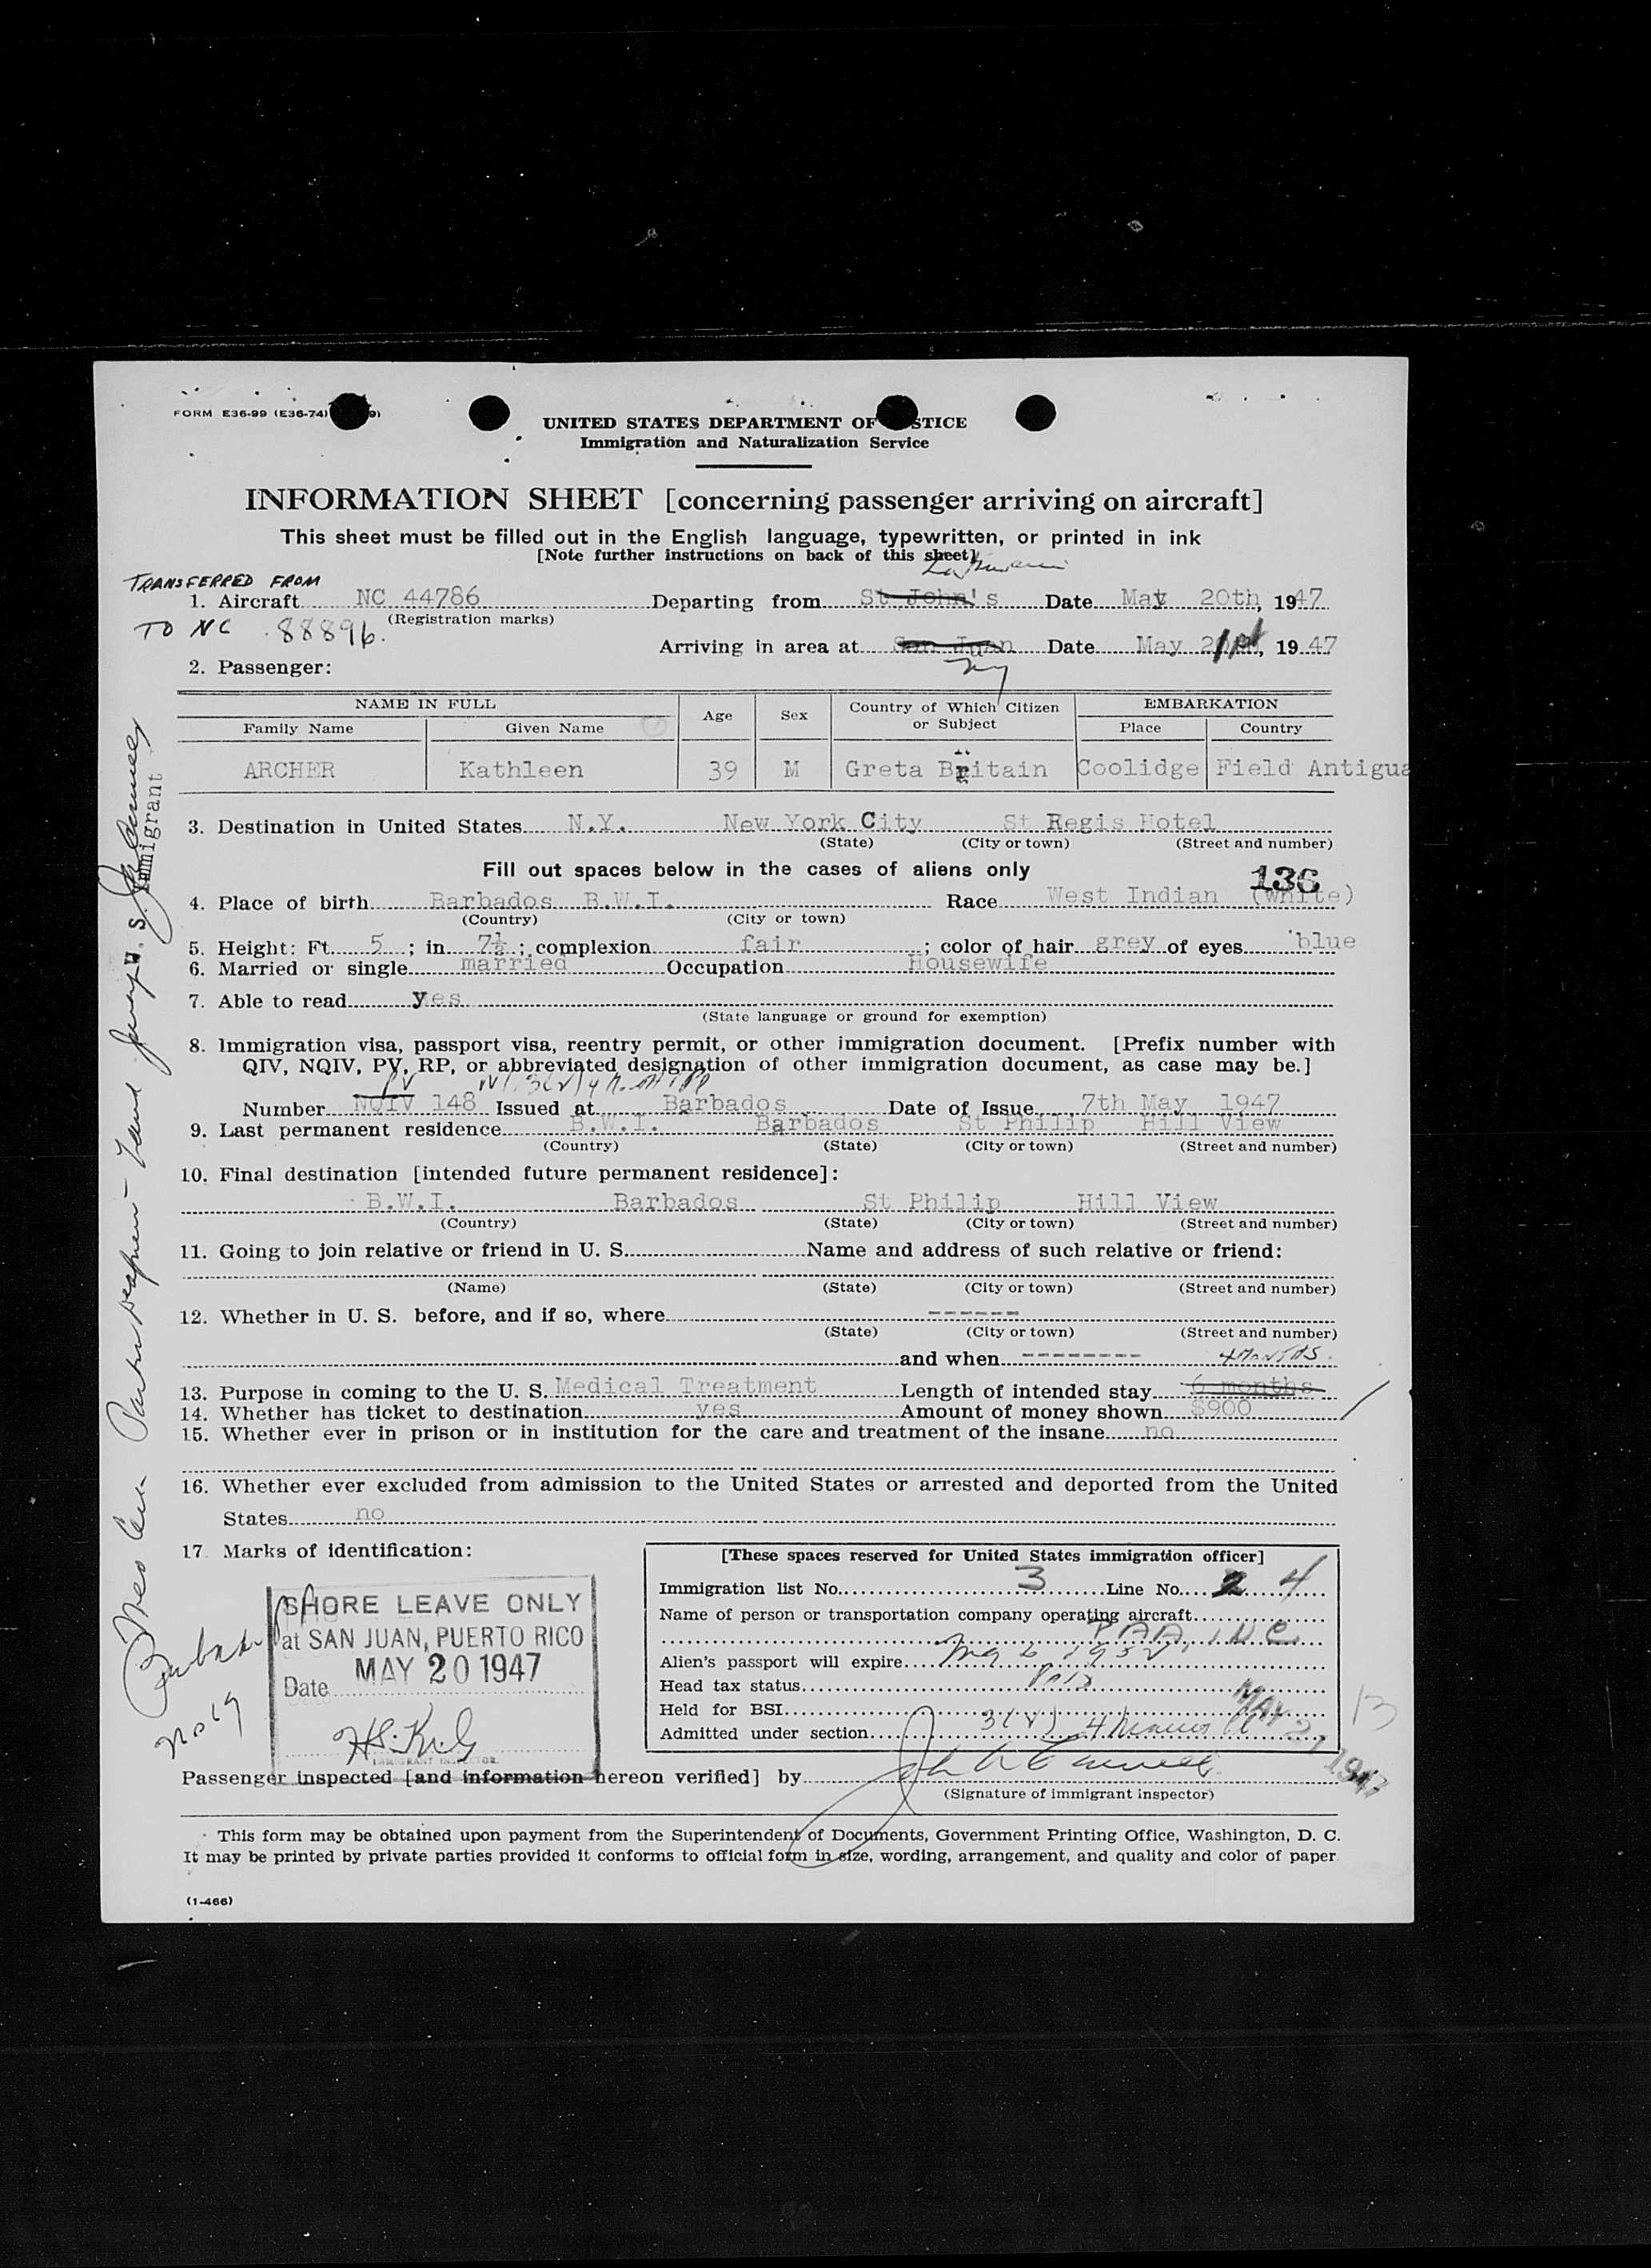 FORM E36-99 (E36-74)
UNITED STATES DEPARTMENT OF STICE
Immigration and Naturalization Service
INFORMATION SHEET [concerning passenger arriving on aircraft]
This sheet must be filled out in the English language, typewritten, or printed in ink
[Note further instructions on back of this sheet]
TRANSFERRED FROM
1. Aircraft NC 44786 Departing from St John's Date May 20th, 1947
TO NC 88896. (Registration marks)
Arriving in area at San Juan Date May 21st, 1947
NY
2. Passenger:
NAME IN FULL Age Sex Country of Which Citizen or Subject EMBARKATION
Family Name Given Name Place Country
ARCHER Kathleen 39 M Greta Britain Coolidge Field Antigua
3. Destination in United States N.Y. New York City St Regis Hotel
(State) (City or town) (Street and number)
Fill out spaces below in the cases of aliens only 136
4. Place of birth Barbados B.W.I. Race West Indian (white)
(Country) (City or town)
5. Height: Ft. 5; in 7½; complexion fair; color of hair grey of eyes blue
6. Married or single married Occupation Housewife
7. Able to read yes
(State language or ground for exemption)
8. Immigration visa, passport visa, reentry permit, or other immigration document. [Prefix number with
QIV, NQIV, PV, RP, or abbreviated designation of other immigration document, as case may be.]
PV
Number NQIV 148 Issued at Barbados Date of Issue 7th May 1947
9. Last permanent residence B.W.I. Barbados St Philip Hill View
(Country) (State) (City or town) (Street and number)
10. Final destination [intended future permanent residence]:
B.W.I. Barbados St Philip Hill View
(Country) (State) (City or town) (Street and number)
11. Going to join relative or friend in U. S. Name and address of such relative or friend:
(Name) (State) (City or town) (Street and number)
12. Whether in U. S. before, and if so, where ------
(State) (City or town) (Street and number)
and when -------- 4 MONTHS.
13. Purpose in coming to the U. S. Medical Treatment Length of intended stay 6 months
14. Whether has ticket to destination yes Amount of money shown $900
15. Whether ever in prison or in institution for the care and treatment of the insane no
16. Whether ever excluded from admission to the United States or arrested and deported from the United
States no
17. Marks of identification:
SHORE LEAVE ONLY
at SAN JUAN, PUERTO RICO
Date MAY 20 1947
IMMIGRANT INSPECTOR
[These spaces reserved for United States immigration officer]
Immigration list No. 3 Line No. 2 4
Name of person or transportation company operating aircraft
PAA, INC.
Alien's passport will expire 1952
Head tax status Paid
Held for BSI
Admitted under section 3(2) 4
MAY 21 1947
13
Passenger inspected [and information hereon verified] by
(Signature of immigrant inspector)
This form may be obtained upon payment from the Superintendent of Documents, Government Printing Office, Washington, D. C.
It may be printed by private parties provided it conforms to official form in size, wording, arrangement, and quality and color of paper
(1-466)
U. S. Immigrant